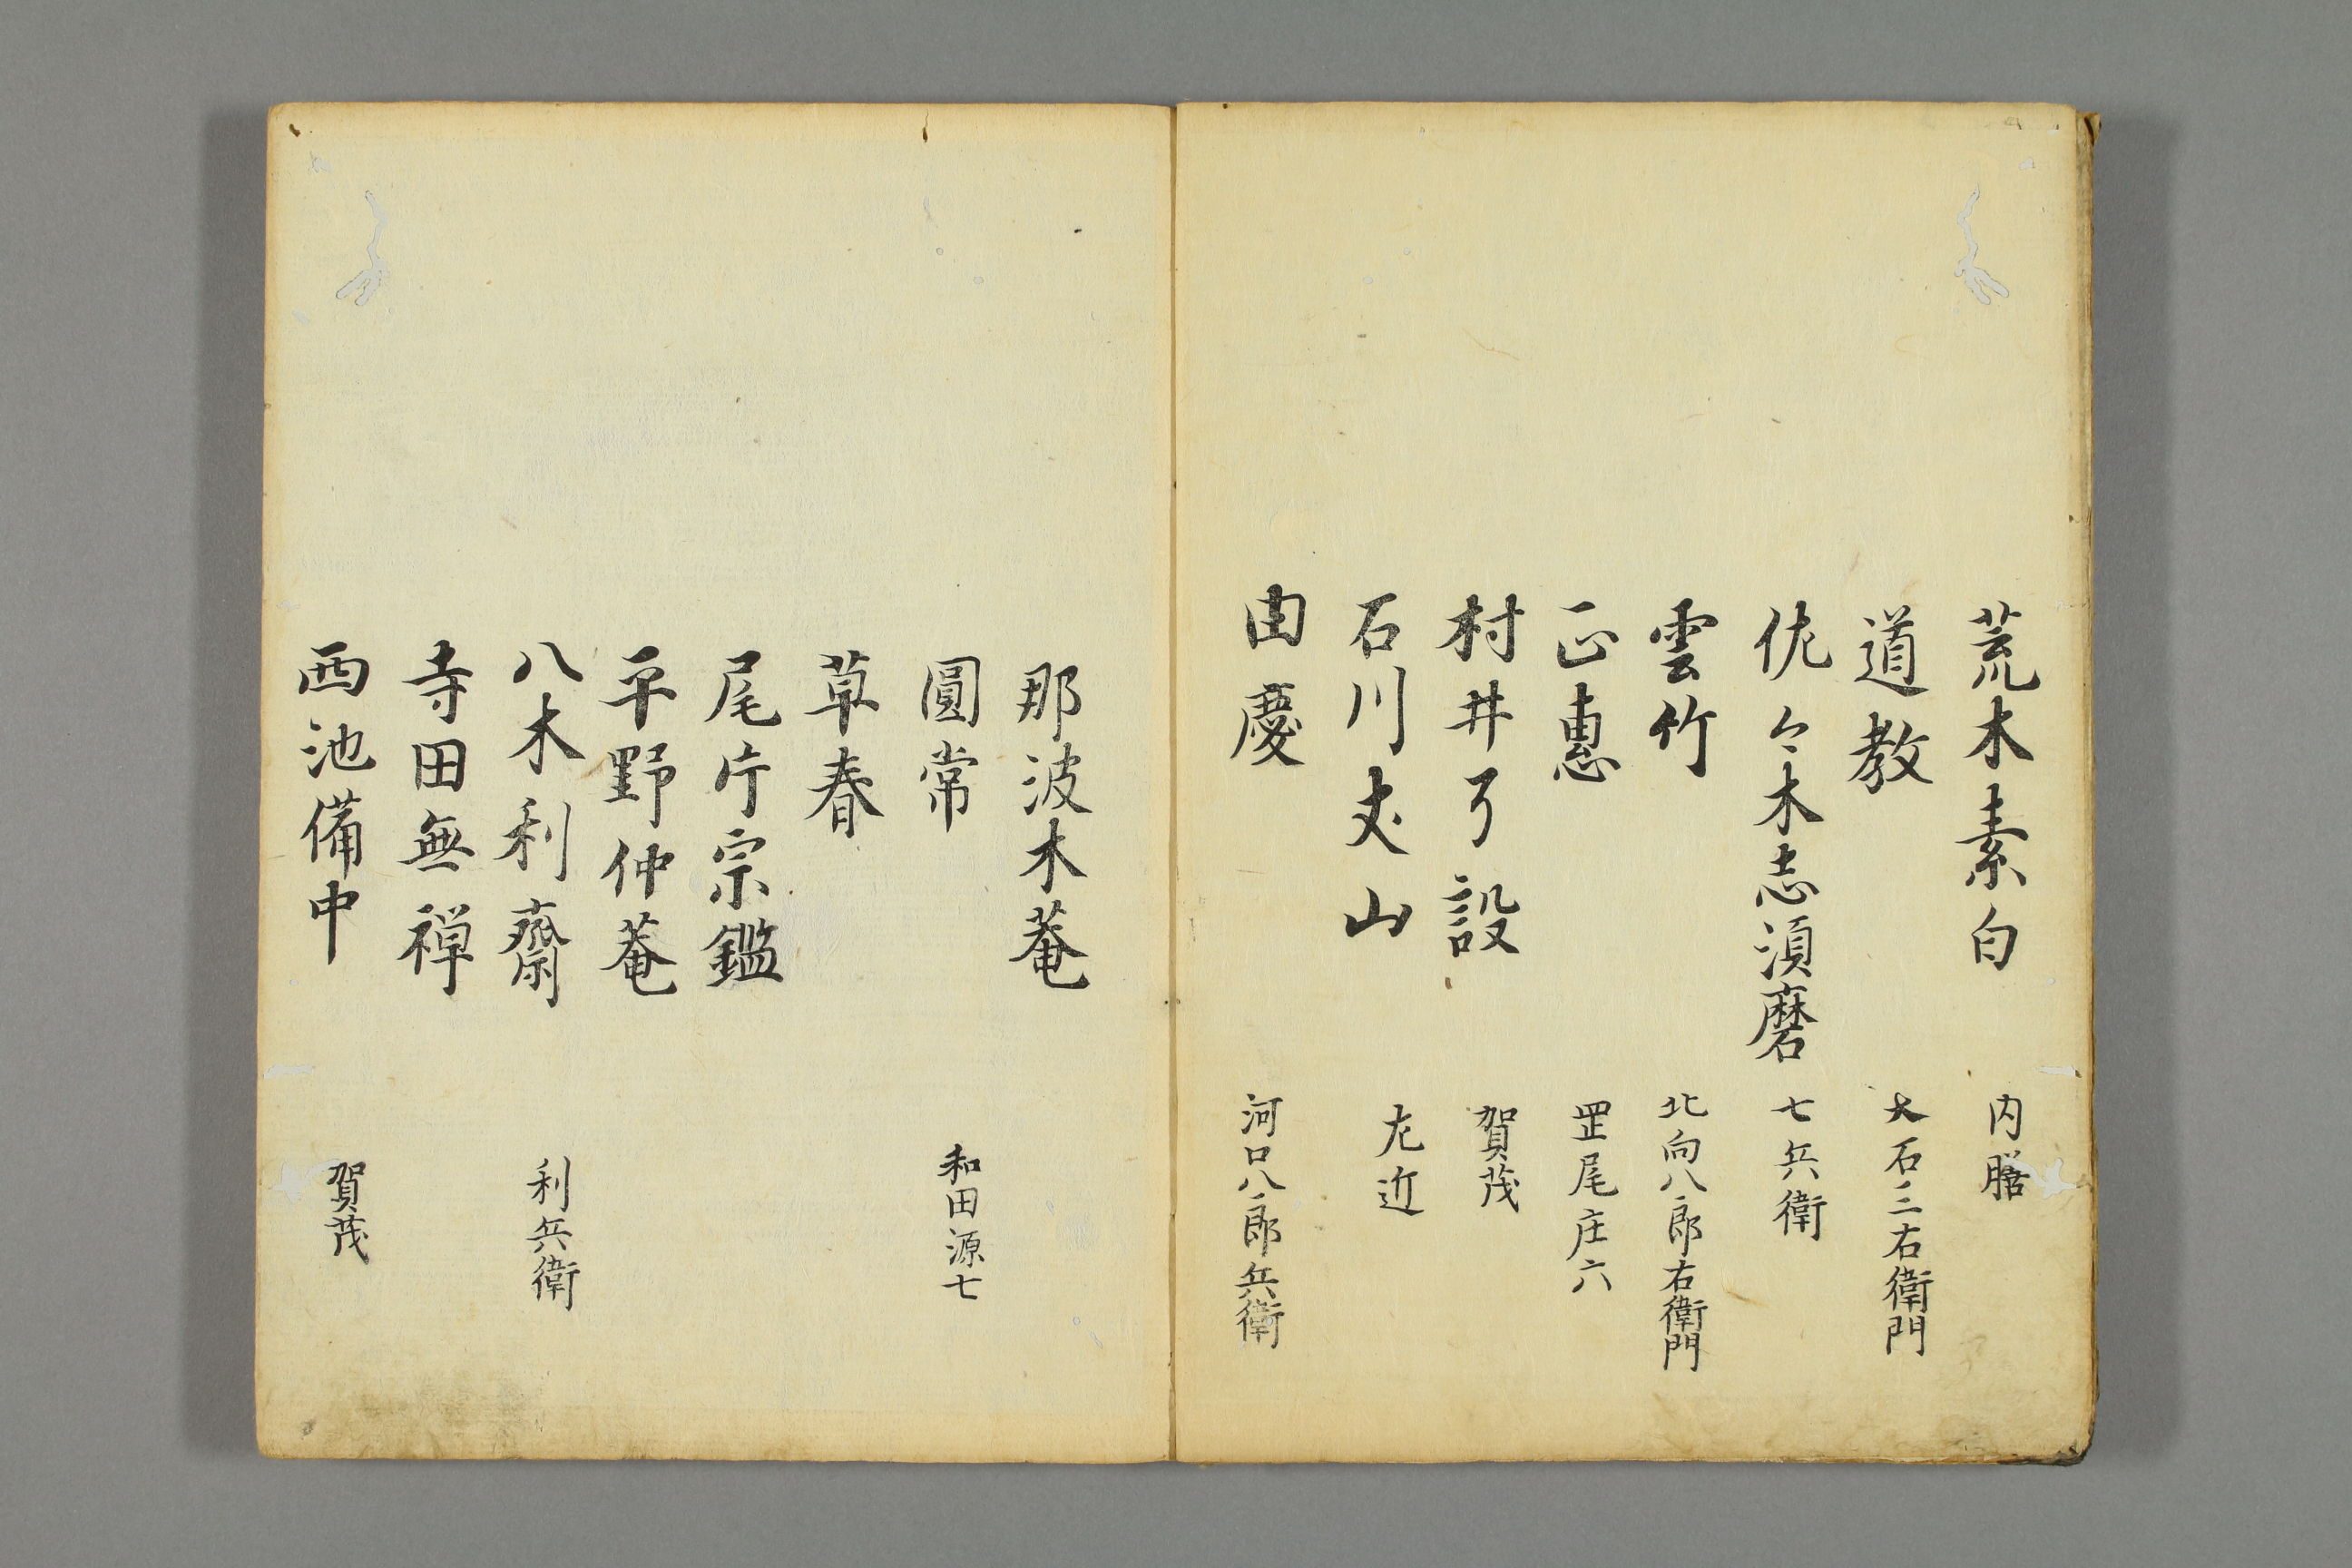 荒木素白 内膳
道教 大石三右衛門
佐々木志須磨 七兵衛
雲竹 北向八郎右衛門
正惠 罡尾庄六
村井了設 賀茂
石川丈山 左近
由慶 河口八郎兵衛
那波木菴
圓常 和田源七
草春
尾片宗鑑
平野仲菴
八木利齋 利兵衛
寺田無禅
西池備中 賀茂